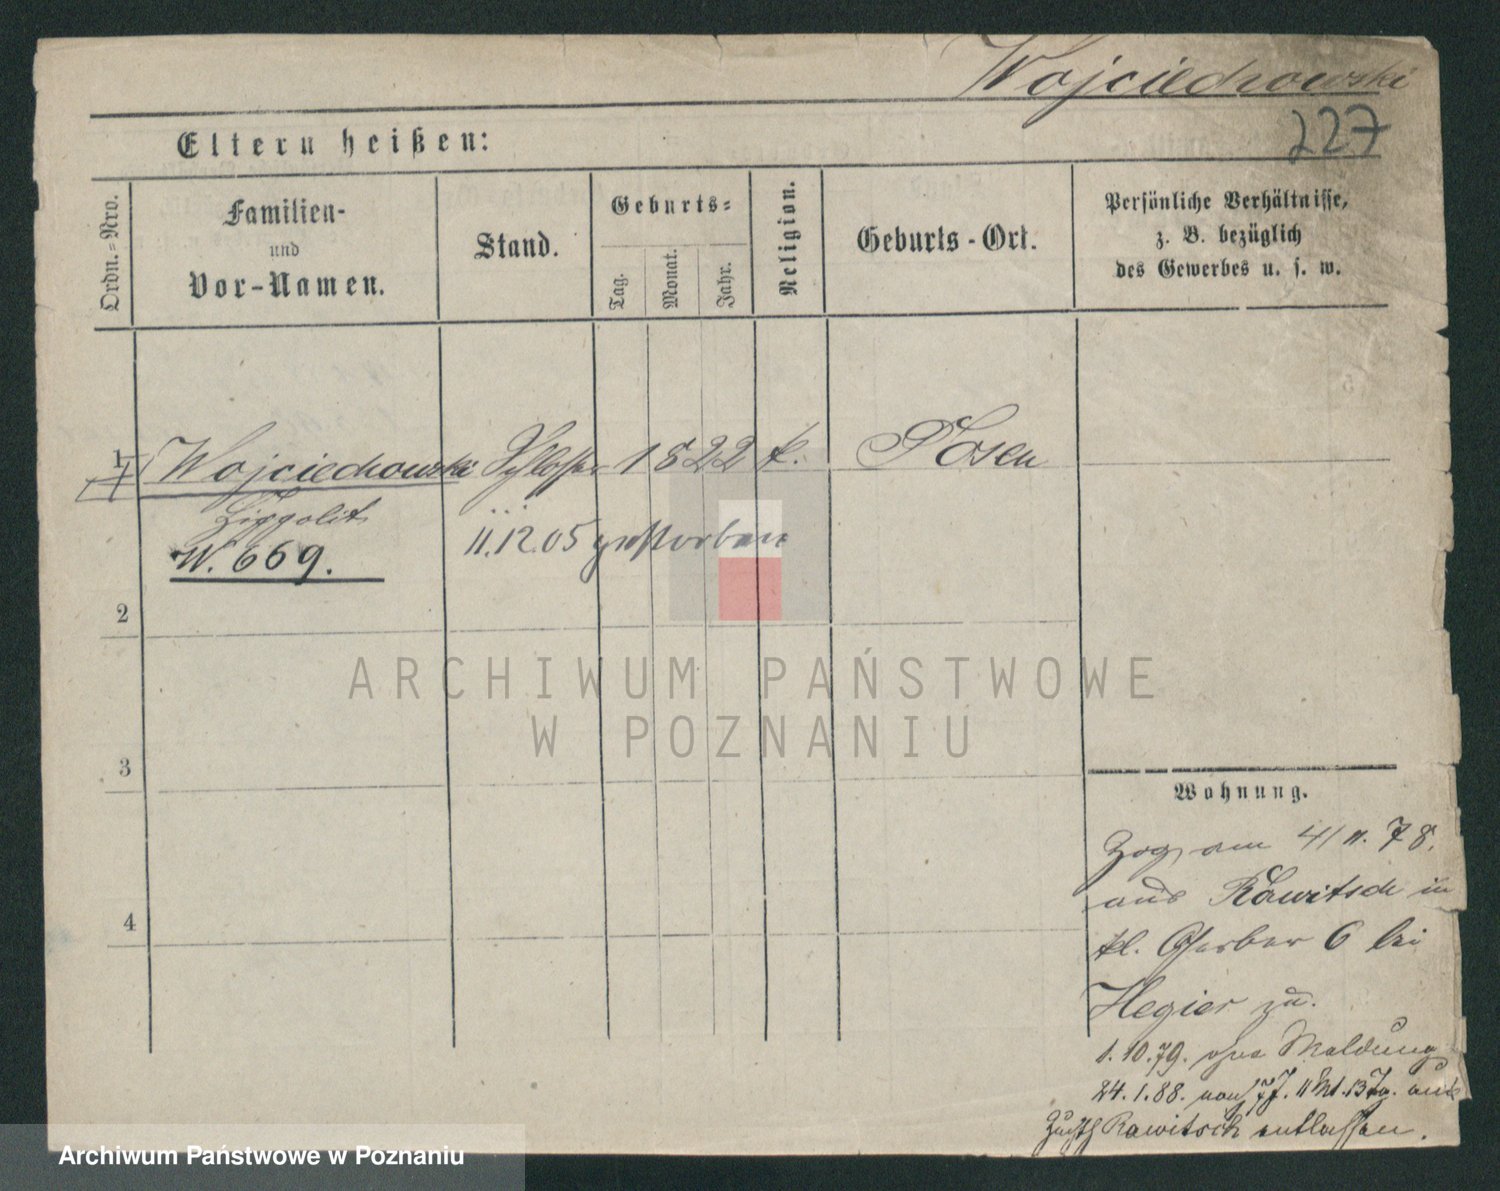 Wojciechowski
227
Eltern heißen:
Ordn.-Nro.
Familien-
und
Vor-Namen.
Stand.
Geburts-
Tag.
Monat.
Jahr.
Religion.
Geburts-Ort.
Persönliche Verhältnisse,
z. B. bezüglich
des Gewerbes u. s. w.
1 Wojciechowski Schlosser 1822 k. Posen
W. 669.
11.12.05 gestorben
2
3
4
ARCHIWUM PAŃSTWOWE
W POZNANIU
Wohnung.
Zog am 4/11. 78.
aus Rawitsch in
kl. Gerber 6 bei
Hegier zu.
1.10.79. ohne Meldung
24.1.88. nach J. 11 Mt. 13 Tg. aus
Zuchth Rawitsch entlassen.
Archiwum Państwowe w Poznaniu